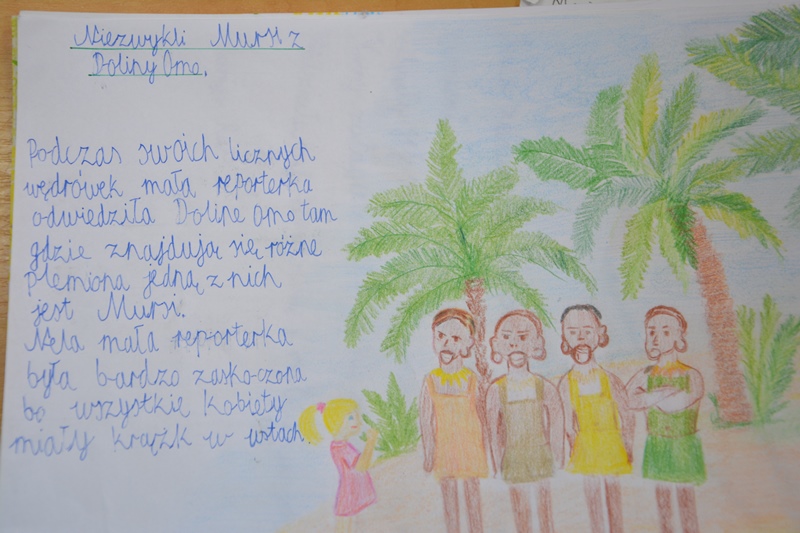 Niezwykli Mursi z
Doliny Omo.
Podczas swoich licznych
wędrówek mała reporterka
odwiedziła Doline Omo tam
gdzie znajdują się różne
plemiona jedną z nich
jest Mursi.
Nela mała reporterka
była bardzo zaskoczona
bo wszystkie kobiety
miały krążk w ustach